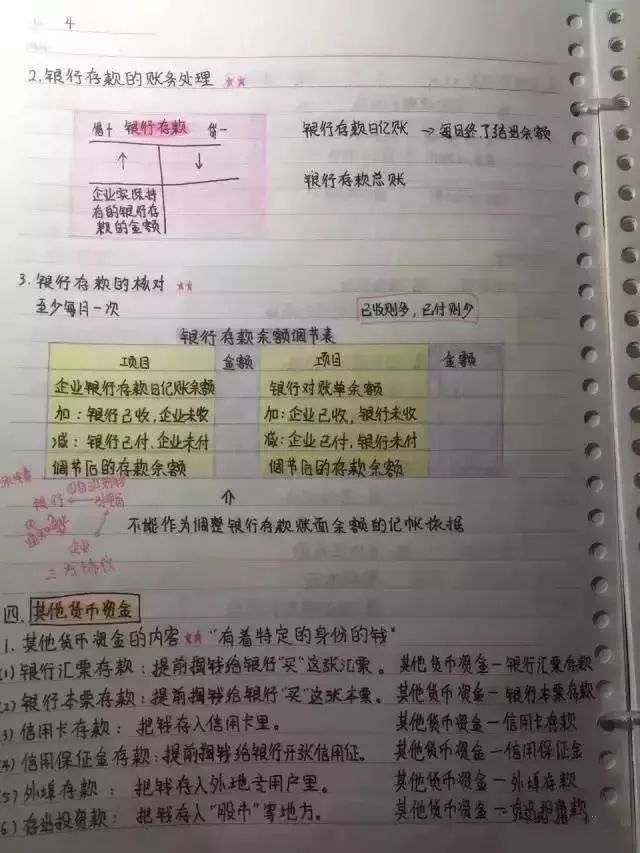 4
2.银行存款的账务处理 ★★
借+ 银行存款 贷-
↑ ↓
企业实保持
有的银行存
款的金额
银行存款日记账 → 每日终了结出余额
银行存款总账
3.银行存款的核对 ★★
至少每月一次
已收则多，已付则少
银行存款余额调节表
项目 金额 项目 金额
企业银行存款日记账余额 银行对账单余额
加：银行已收，企业未收 加：企业已收，银行未收
减：银行已付，企业未付 减：企业已付，银行未付
调节后的存款余额 调节后的存款余额
不能作为调整银行存款账面余额的记帐依据
银行
企业
四.其他货币资金
1.其他货币资金的内容 ★★ "有着特定的身份的钱"
(1)银行汇票存款：提前搁钱给银行"买"这张汇票。 其他货币资金—银行汇票存款
(2)银行本票存款：提前搁钱给银行"买"这张本票。 其他货币资金—银行本票存款
(3)信用卡存款：把钱存入信用卡里。 其他货币资金—信用卡存款
(4)信用保证金存款：提前搁钱给银行开张信用证。 其他货币资金—信用保证金
(5)外埠存款：把钱存入外地专用户里。 其他货币资金—外埠存款
(6)存出投资款：把钱存入"股市"等地方。 其他货币资金—存出投资款